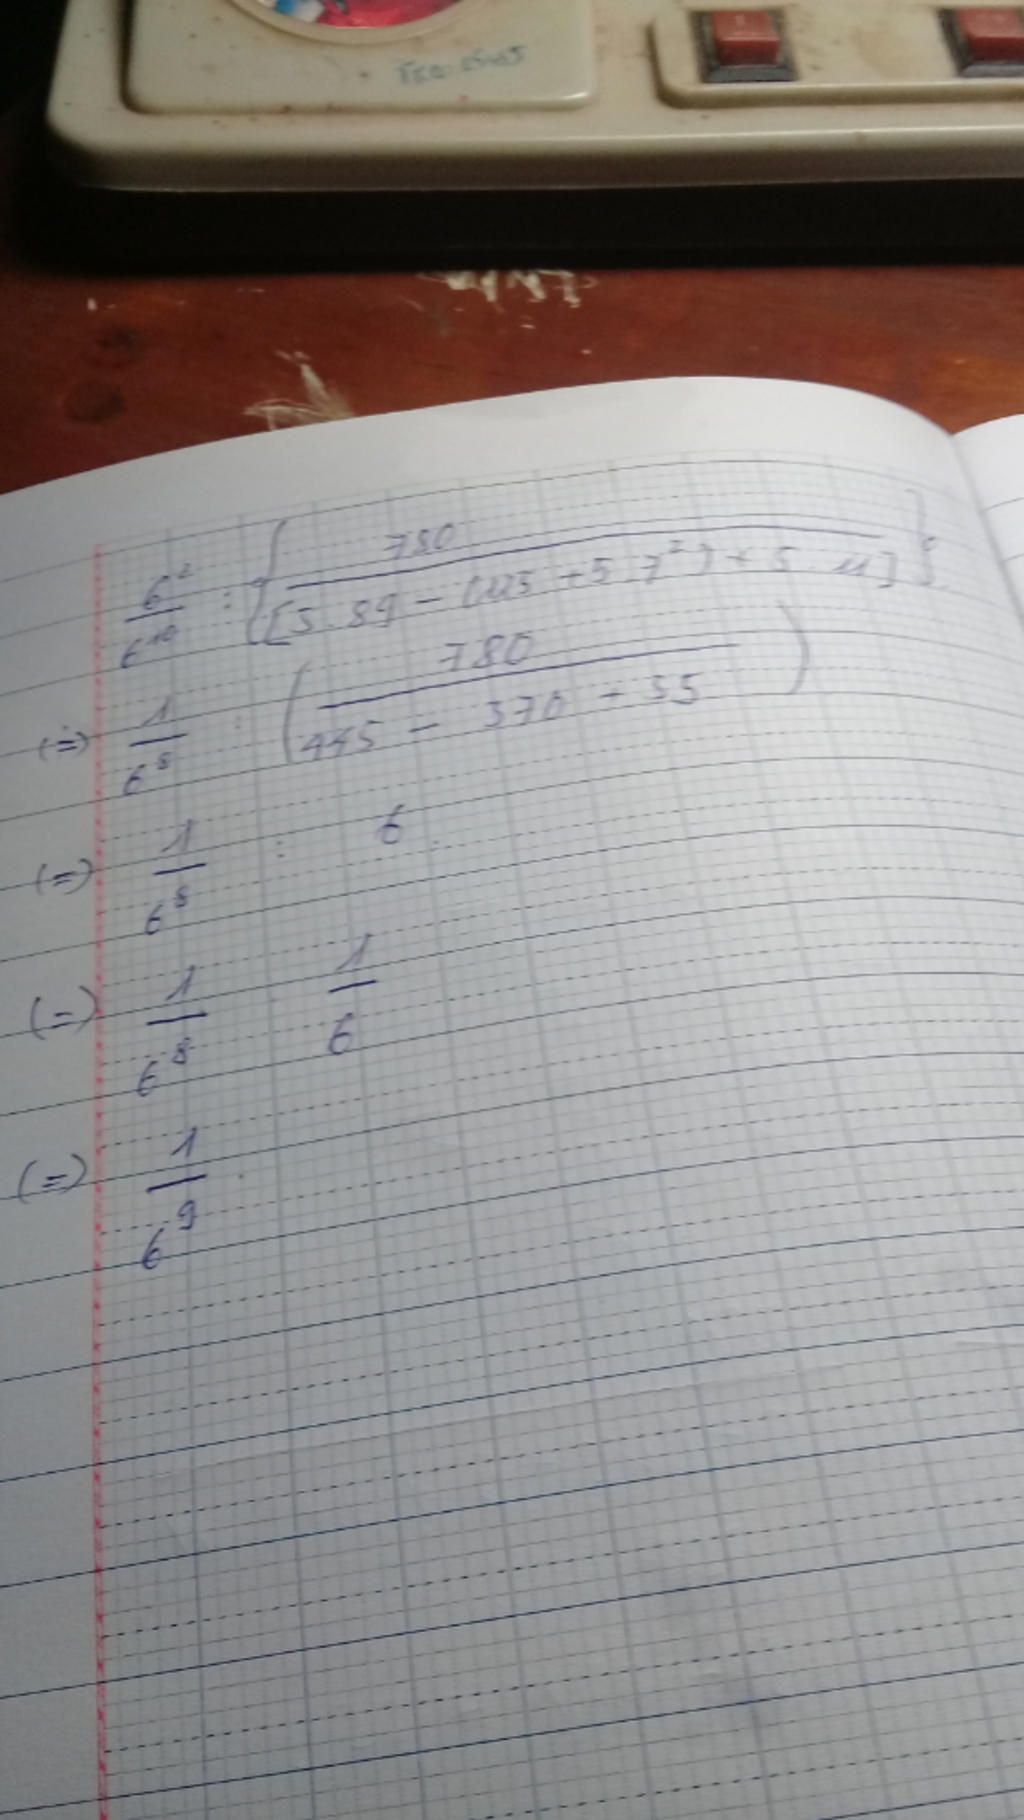 6² / 6¹⁰ : { 780 / [5.89 - (125 + 5.7²) + 5.11] }
(=) 1 / 6⁸ : ( 780 / 445 - 370 + 55 )
(=) 1 / 6⁸ : 6
(=) 1 / 6⁸ . 1 / 6
(=) 1 / 6⁹